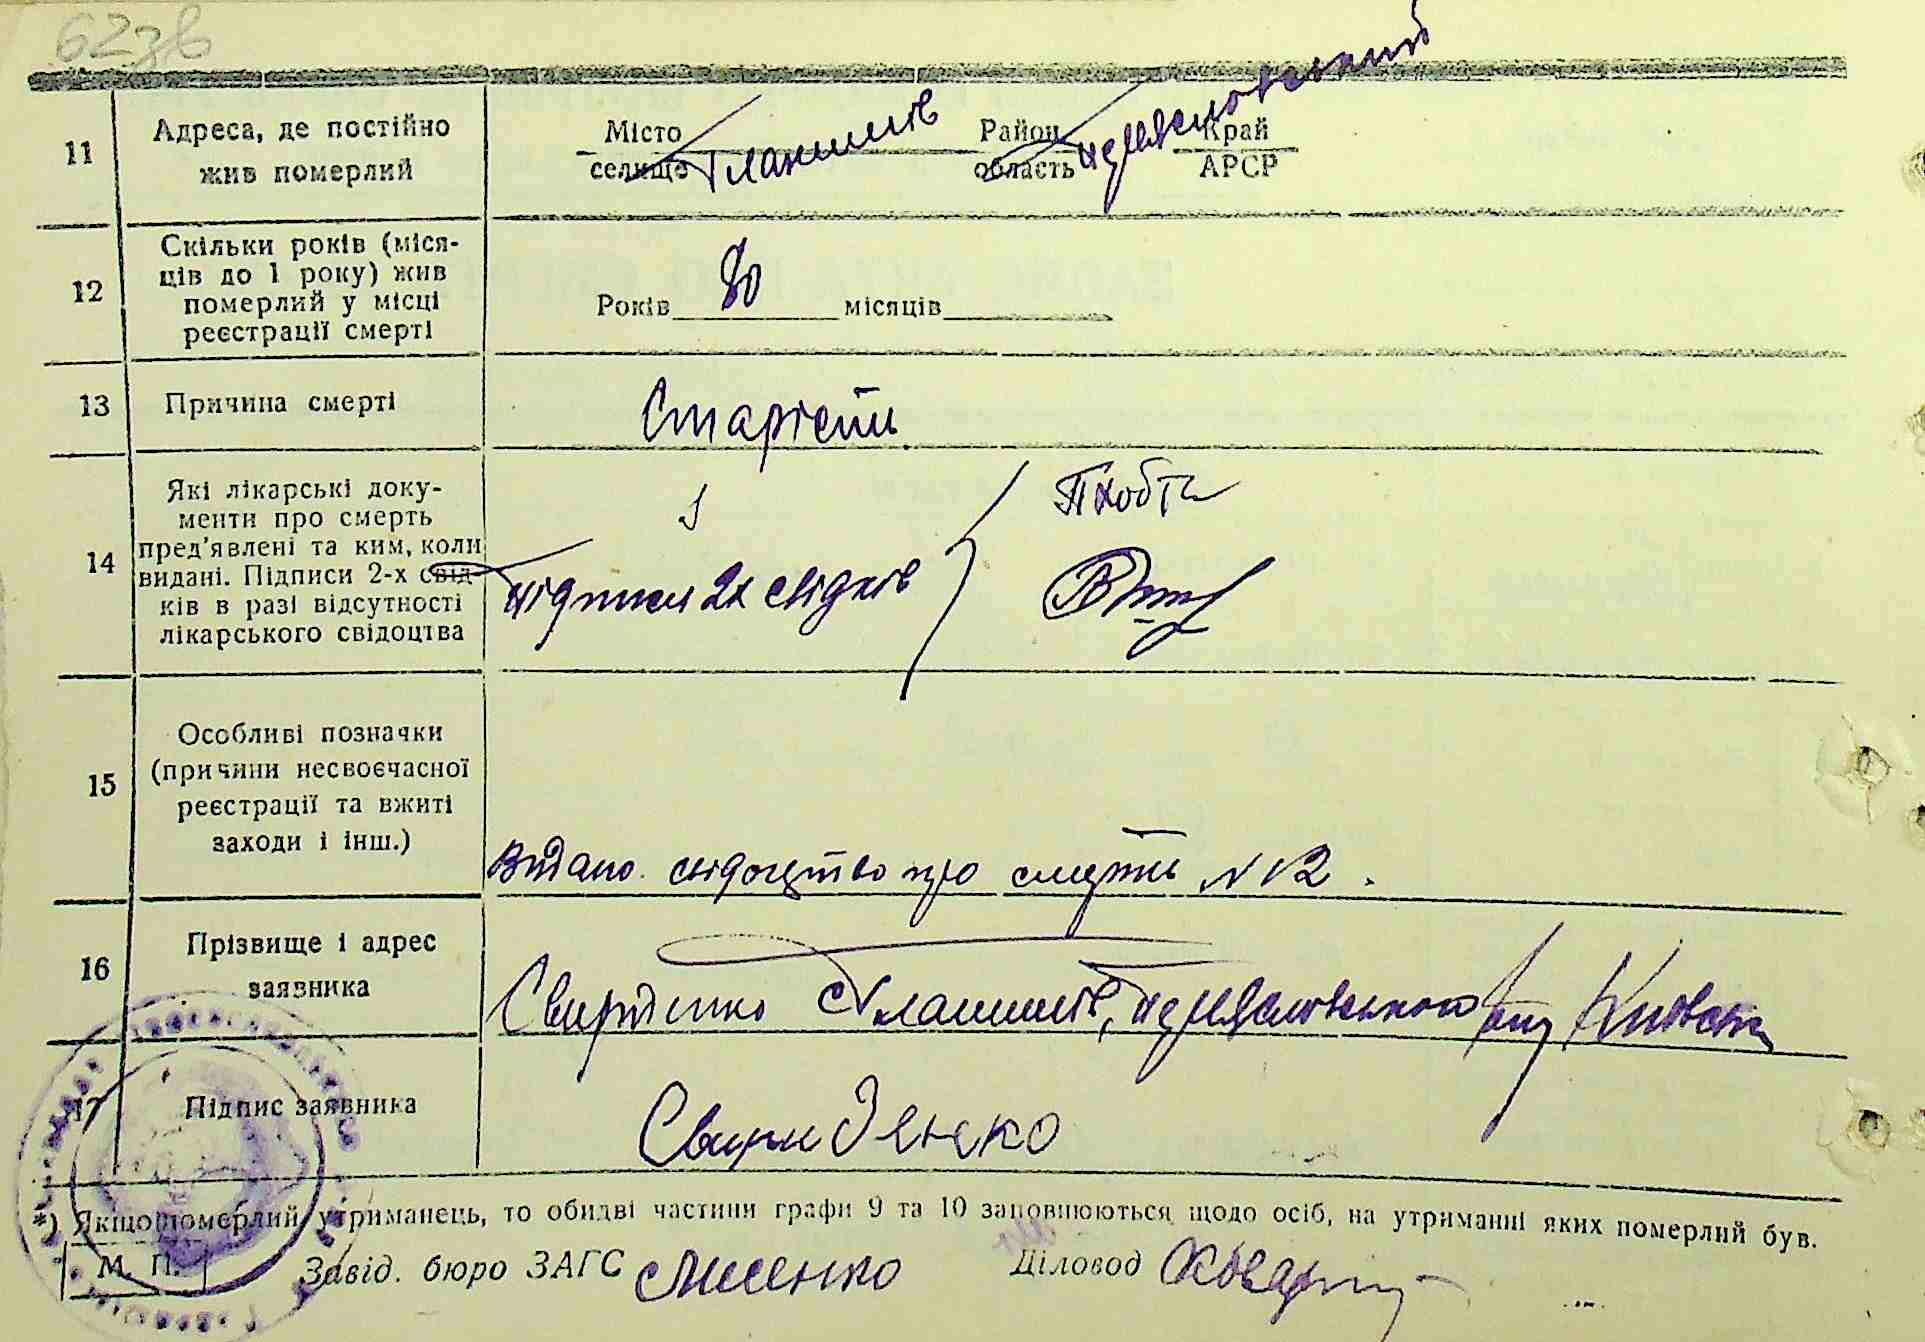 62зв
11
Адреса, де постійно
жив померлий
Місто
селище
Гланишів
Район
область
Край
АРСР
12
Скільки років (міся-
ців до 1 року) жив
померлий у місці
реєстрації смерті
Років 80 місяців
13
Причина смерті
Старість
14
Які лікарські доку-
менти про смерть
пред'явлені та ким, коли
видані. Підписи 2-х свід-
ків в разі відсутності
лікарського свідоцтва
Підписи 2х свідків
15
Особливі позначки
(причини несвоєчасної
реєстрації та вжиті
заходи і інш.)
Видано свідоцтво про смерть N 12.
16
Прізвище і адрес
заявника
Свириденко с Гланишів,
17
Підпис заявника
Свириденко
*) Якщо померлий утриманець, то обидві частини графи 9 та 10 заповнюються щодо осіб, на утриманні яких померлий був.
М. П.
Завід. бюро ЗАГС Лисенко Діловод